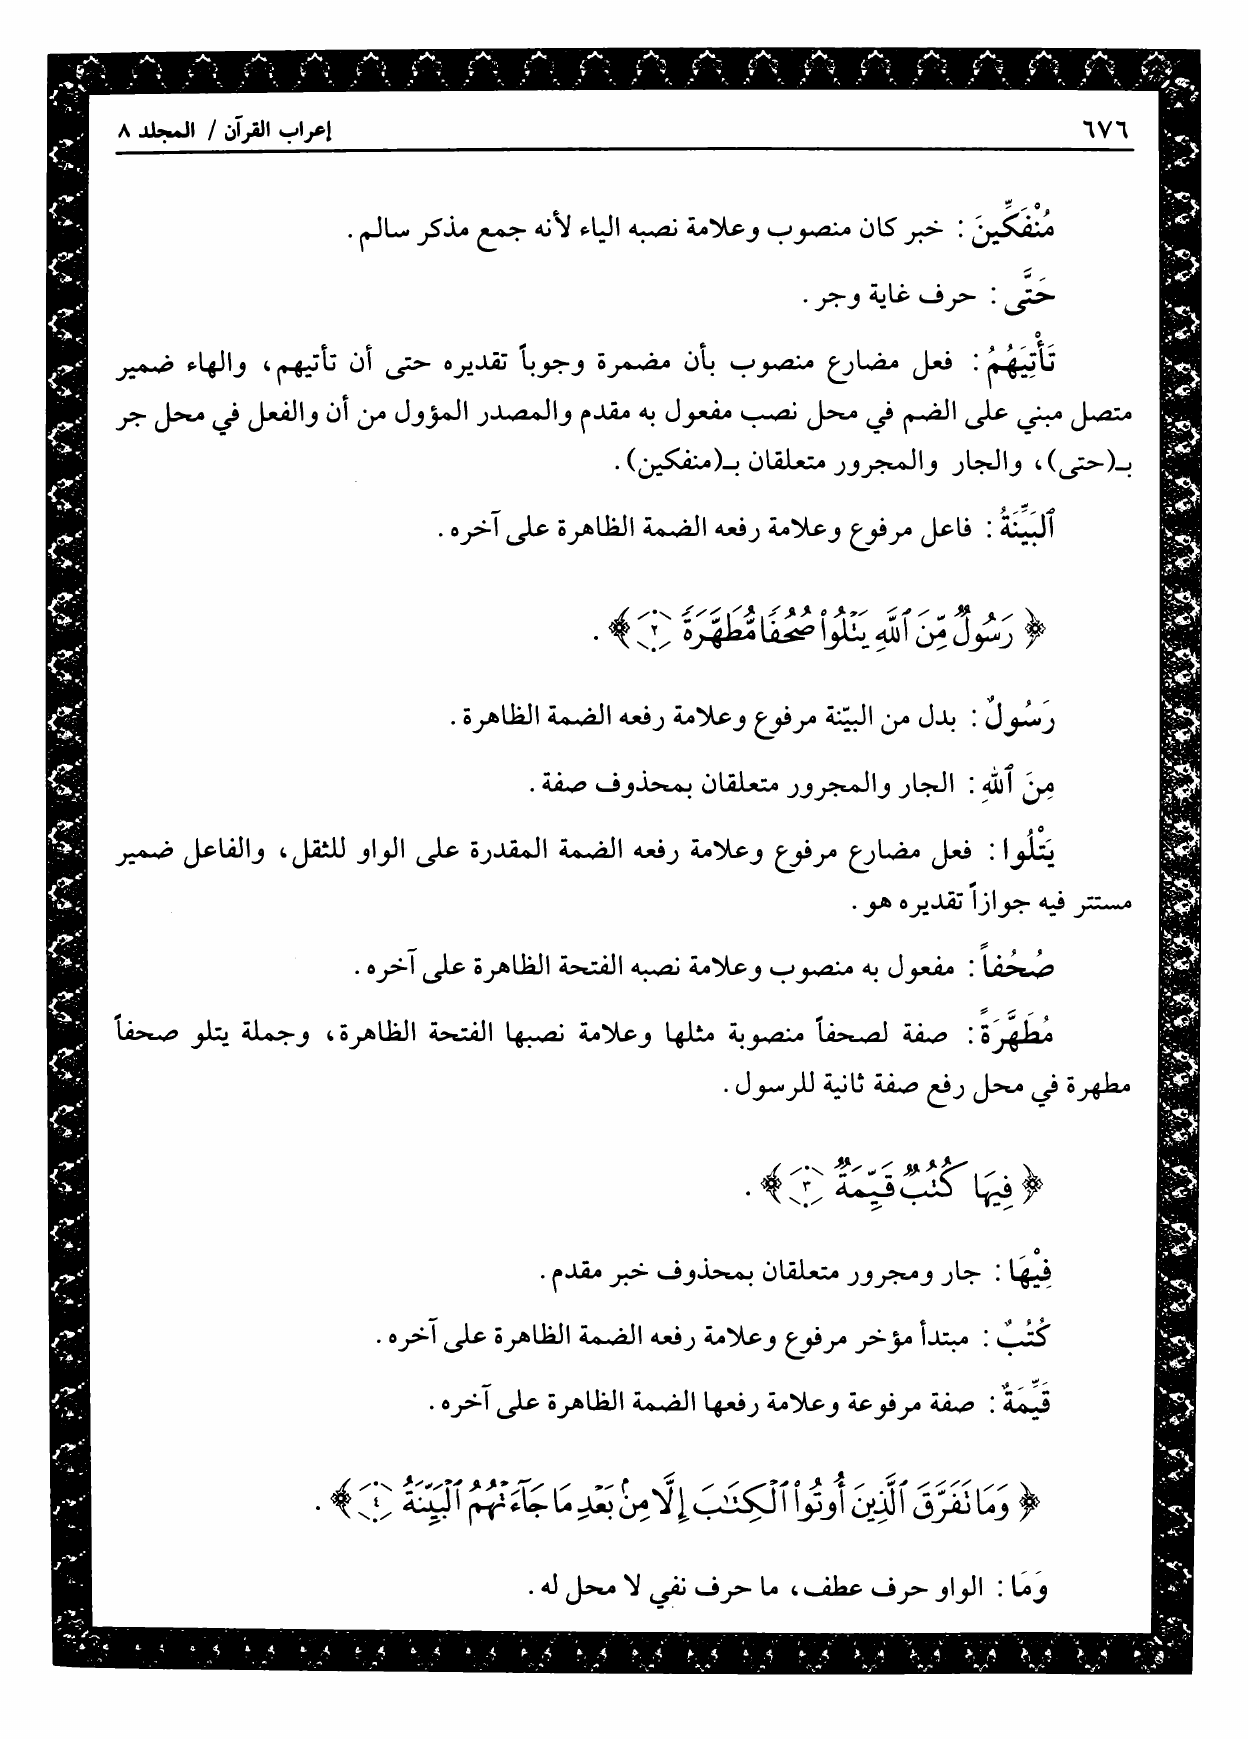 ٦٧٦
إعراب القرآن / المجلد ٨
مُنْفَكِّينَ : خبر كان منصوب وعلامة نصبه الياء لأنه جمع مذكر سالم .
حَتَّى : حرف غاية وجر .
تَأْتِيَهُمُ : فعل مضارع منصوب بأن مضمرة وجوباً تقديره حتى أن تأتيهم، والهاء ضمير
متصل مبني على الضم في محل نصب مفعول به مقدم والمصدر المؤول من أن والفعل في محل جر
بـ(حتى)، والجار والمجرور متعلقان بـ(منفكين) .
ٱلْبَيِّنَةُ : فاعل مرفوع وعلامة رفعه الضمة الظاهرة على آخره .
﴿ رَسُولٌ مِّنَ ٱللَّهِ يَتْلُوا۟ صُحُفًا مُّطَهَّرَةً ٢ ﴾ .
رَسُولٌ : بدل من البيّنة مرفوع وعلامة رفعه الضمة الظاهرة .
مِنَ ٱللهِ : الجار والمجرور متعلقان بمحذوف صفة .
يَتْلُوا : فعل مضارع مرفوع وعلامة رفعه الضمة المقدرة على الواو للثقل، والفاعل ضمير
مستتر فيه جوازاً تقديره هو .
صُحُفاً : مفعول به منصوب وعلامة نصبه الفتحة الظاهرة على آخره .
مُطَهَّرَةً : صفة لصحفاً منصوبة مثلها وعلامة نصبها الفتحة الظاهرة، وجملة يتلو صحفاً
مطهرة في محل رفع صفة ثانية للرسول .
﴿ فِيهَا كُتُبٌ قَيِّمَةٌ ٣ ﴾ .
فِيْهَا : جار ومجرور متعلقان بمحذوف خبر مقدم .
كُتُبٌ : مبتدأ مؤخر مرفوع وعلامة رفعه الضمة الظاهرة على آخره .
قَيِّمَةٌ : صفة مرفوعة وعلامة رفعها الضمة الظاهرة على آخره .
﴿ وَمَا تَفَرَّقَ ٱلَّذِينَ أُوتُوا۟ ٱلْكِتَٰبَ إِلَّا مِنۢ بَعْدِ مَا جَآءَتْهُمُ ٱلْبَيِّنَةُ ٤ ﴾ .
وَمَا : الواو حرف عطف، ما حرف نفي لا محل له .